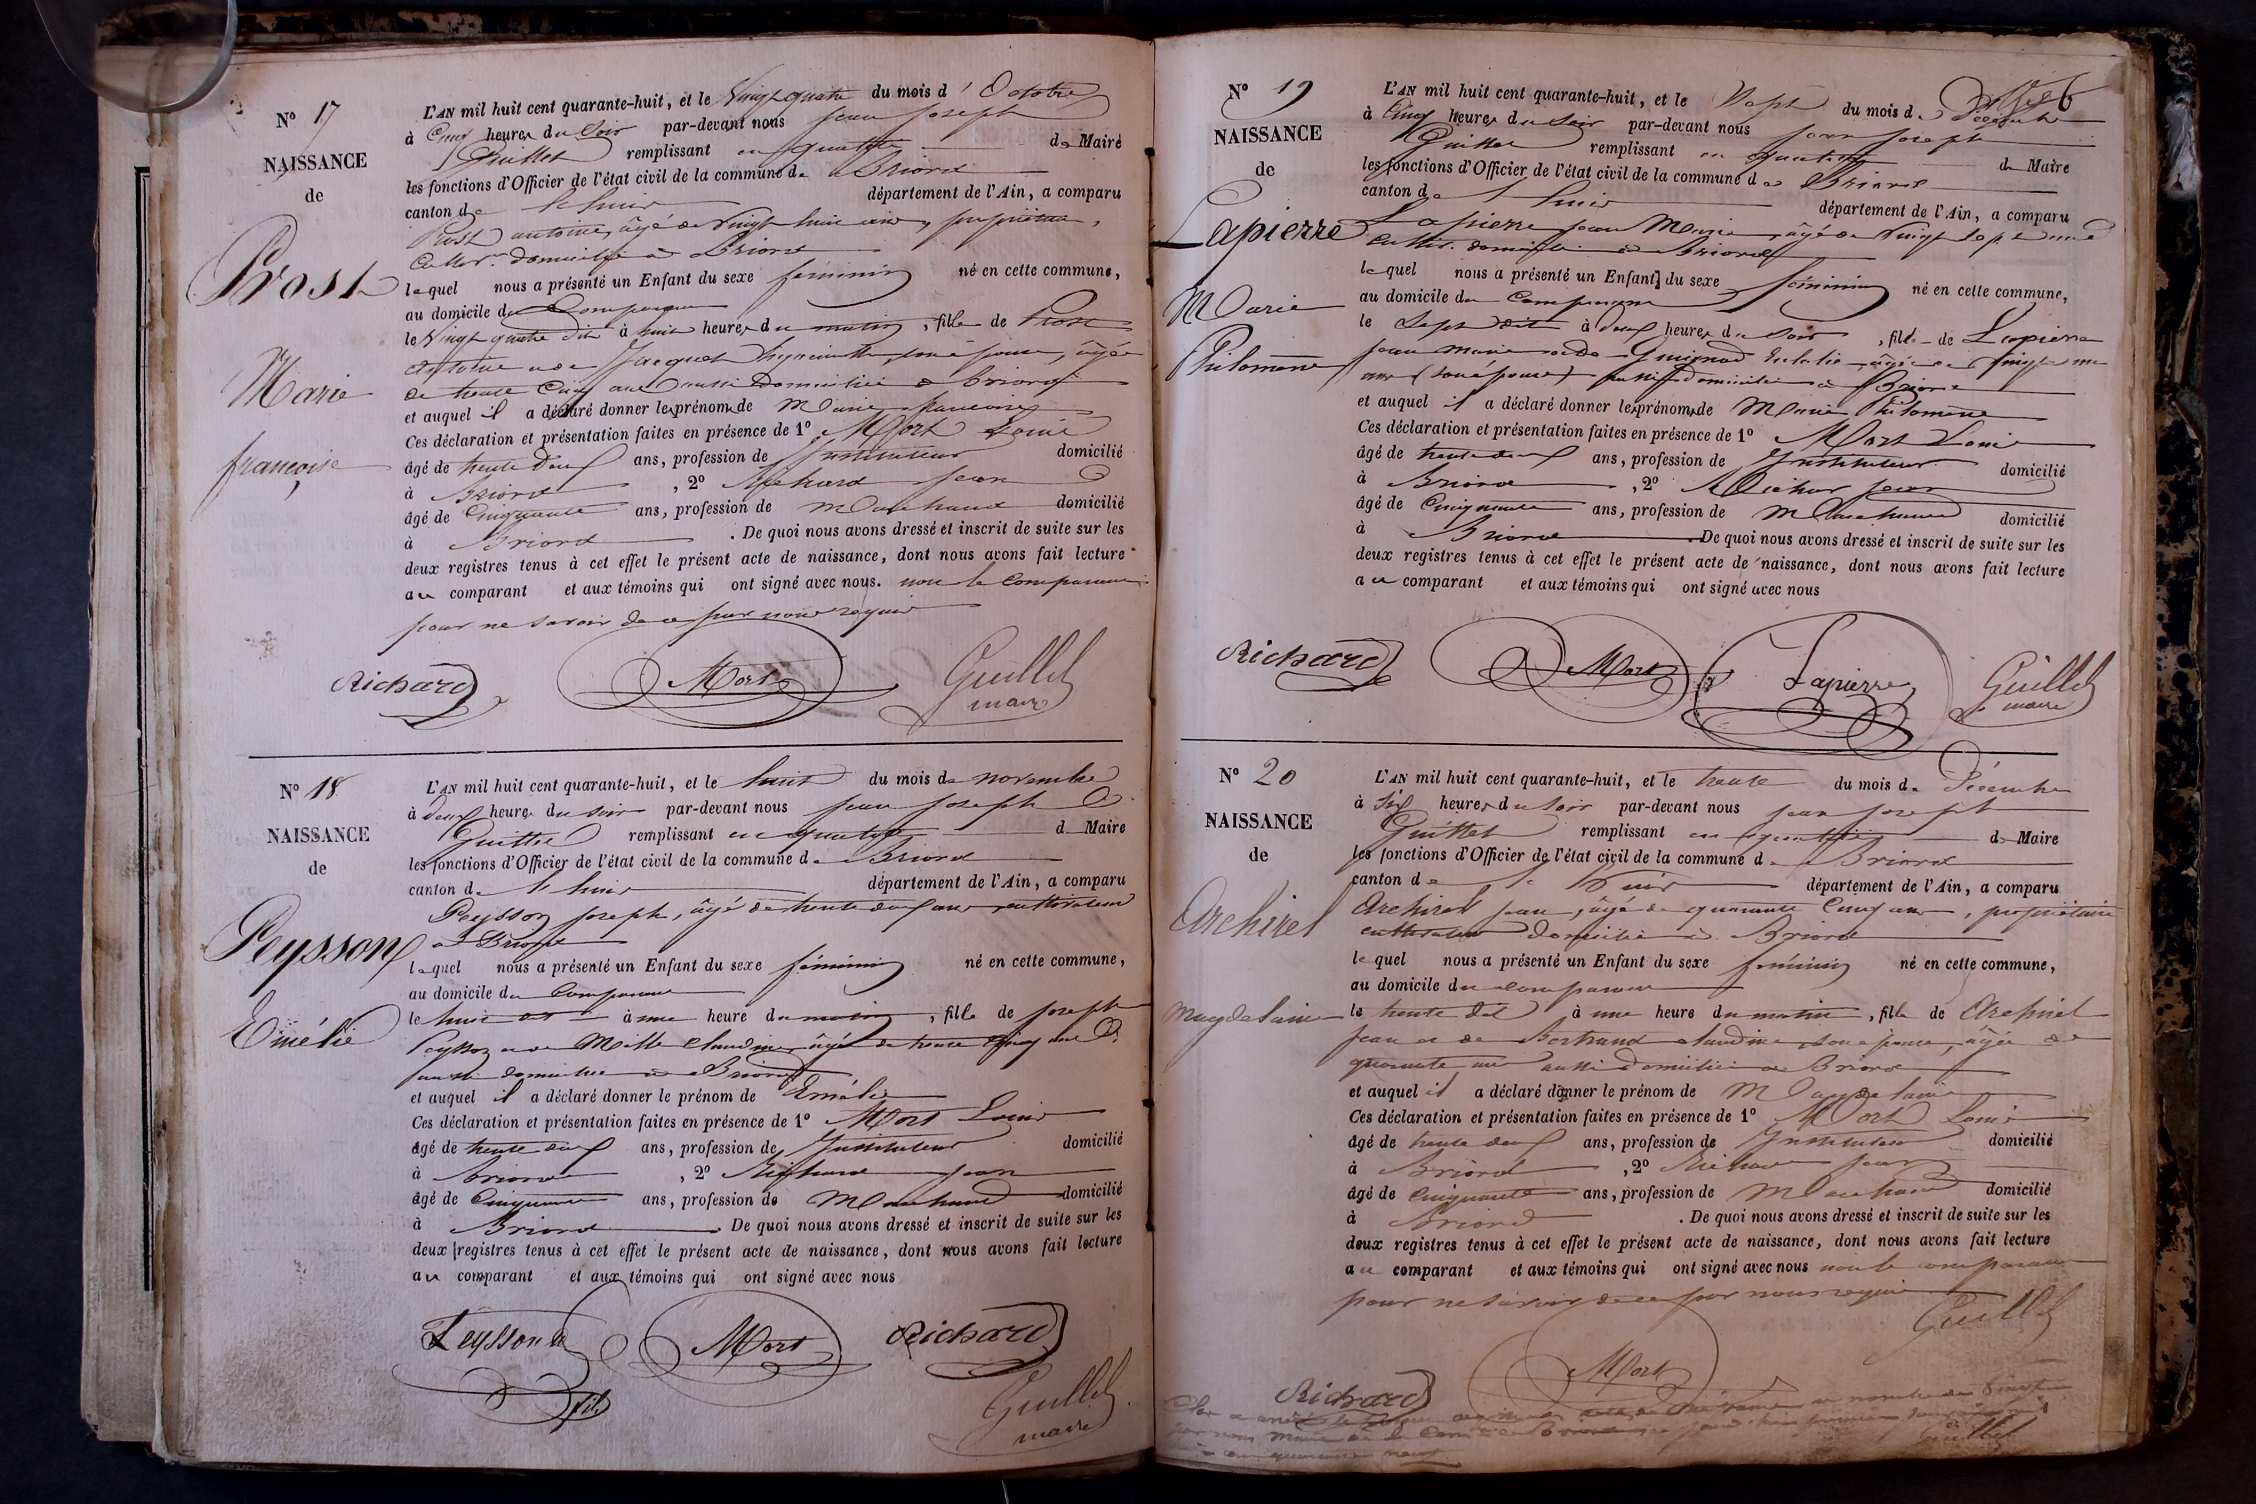 N° 17
NAISSANCE
de
Prost
Marie
françoise
L'AN mil huit cent quarante-huit, et le Vingt quatre du mois d'Octobre
à Cinq heures du Soir par-devant nous jean joseph
Guillet remplissant en qualité de Maire
les fonctions d'Officier de l'état civil de la commune de Briord
canton de Lhuis département de l'Ain, a comparu
Prost antoine, âgé de Vingt huit ans, propriétaire,
Cultivr. domicilié à Briord
lequel nous a présenté un Enfant du sexe féminin né en cette commune,
au domicile du Comparant
le Vingt quatre dit à huit heures du matin, fille de Prost
antoine et de Jacquet hyacinthe, son épouse, âgée
de trente Cinq ans aussi Domiciliée à briord
et auquel il a déclaré donner les prénoms de Marie françoise
Ces déclaration et présentation faites en présence de 1° Mort Louis
âgé de trente deux ans, profession de Instituteur domicilié
à Briord, 2° Richard jean
âgé de Cinquante ans, profession de Marchand domicilié
à Briord. De quoi nous avons dressé et inscrit de suite sur les
deux registres tenus à cet effet le présent acte de naissance, dont nous avons fait lecture
au comparant et aux témoins qui ont signé avec nous. non le Comparant
pour ne savoir de ce par nous requis
Richard Mort Guillet
maire
N° 18
NAISSANCE
de
Peysson
Emélie
L'AN mil huit cent quarante-huit, et le huit du mois de novembre
à deux heures du soir par-devant nous jean joseph
Guillet remplissant en qualité d Maire
les fonctions d'Officier de l'état civil de la commune de Briord
canton de Lhuis département de l'Ain, a comparu
Peysson joseph, âgé de trente deux ans cultivateur
à Briord
lequel nous a présenté un Enfant du sexe féminin né en cette commune,
au domicile du Comparant
le huit dit à une heure du matin, fille de joseph
Peysson et de Claudine âgée de trente Cinq ans
aussi domiciliée à Briord
et auquel il a déclaré donner le prénom de Emélie
Ces déclaration et présentation faites en présence de 1° Mort Louis
âgé de trente deux ans, profession de Instituteur domicilié
à briord, 2° Richard jean
âgé de Cinquante ans, profession de Marchand domicilié
à Briord. De quoi nous avons dressé et inscrit de suite sur les
deux registres tenus à cet effet le présent acte de naissance, dont nous avons fait lecture
au comparant et aux témoins qui ont signé avec nous
Peysson Mort Richard
fils
Guillet
maire
N° 19
NAISSANCE
de
Lapierre
Marie
Philomène
L'AN mil huit cent quarante-huit, et le Sept du mois de Décembre
à Cinq heures du Soir par-devant nous jean joseph
Guillet remplissant en qualité de Maire
les fonctions d'Officier de l'état civil de la commune de Briord
canton de Lhuis département de l'Ain, a comparu
Lapierre jean Marie, âgé de Vingt sept ans
Cultiv. domicilié à Briord
lequel nous a présenté un Enfant du sexe féminin né en cette commune,
au domicile du Comparant
le Sept dit à deux heures du Soir, fille de Lapierre
jean marie et de Guignod Eulalie âgée de Vingt un
ans (son épouse) aussi domiciliée à Briord
et auquel il a déclaré donner les prénoms de Marie Philomène
Ces déclaration et présentation faites en présence de 1° Mort Louis
âgé de trente deux ans, profession de Instituteur domicilié
à Briord, 2° Richard jean
âgé de Cinquante ans, profession de Marchand domicilié
à Briord. De quoi nous avons dressé et inscrit de suite sur les
deux registres tenus à cet effet le présent acte de naissance, dont nous avons fait lecture
au comparant et aux témoins qui ont signé avec nous
Richard Mort Lapierre Guillet
maire
N° 20
NAISSANCE
de
Archirel
Magdelaine
L'AN mil huit cent quarante-huit, et le trente du mois de Décembre
à Six heures du soir par-devant nous jean joseph
Guillet remplissant en qualité de Maire
les fonctions d'Officier de l'état civil de la commune de Briord
canton de Lhuis département de l'Ain, a comparu
Archirel jean, âgé de quarante Cinq ans, propriétaire
cultivateur domicilié à Briord
lequel nous a présenté un Enfant du sexe féminin né en cette commune,
au domicile du comparant
le trente dit à une heure du matin, fille de Archirel
jean et de Bertrand claudine, son épouse, âgée de
quarante ans aussi domiciliée à Briord
et auquel il a déclaré donner le prénom de Magdelaine
Ces déclaration et présentation faites en présence de 1° Mort Louis
âgé de trente deux ans, profession de Instituteur domicilié
à Briord, 2° Richard jean
âgé de Cinquante ans, profession de Marchand domicilié
à Briord. De quoi nous avons dressé et inscrit de suite sur les
deux registres tenus à cet effet le présent acte de naissance, dont nous avons fait lecture
au comparant et aux témoins qui ont signé avec nous non le comparant
pour ne savoir de ce par nous requis
Guillet
Richard Mort
Clos et arrêté au nombre de Vingt
par nous Maire de la Commune de Briord
quarante neuf Guillet